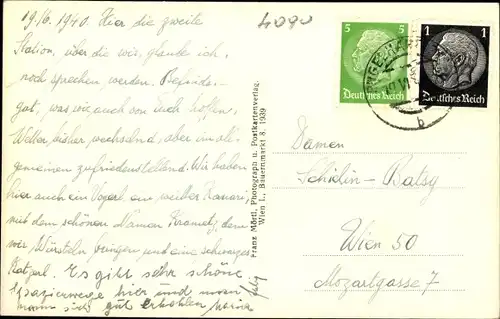 19./6. 1940. Hier die zweite
Station, über die wir, glaube ich,
noch sprechen werden. Befinden
gut, was wir auch von Euch hoffen.
Wetter bisher wechselnd, aber im all-
gemeinen zufriedenstellend. Wir haben
hier auch ein Vogerl, ein weißer Kanari,
mit dem schönen Namen dem
wir Würsteln bringen und eine schwarze
Katzerl. Es gibt sehr schöne
Spazierwege hier und man
kann sich gut erholen Maria
4090
Franz Mörtl, Photograph u. Postkartenverlag.
Wien I., Bauernmarkt 8. 1939
5 5
Deutsches Reich
1 1
Deutsches Reich
b
Damen
Schielin-Batsy
Wien 50
Mozartgasse 7